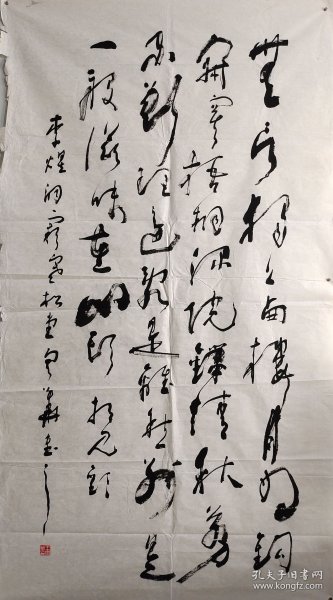 無言獨上西樓月如鉤
寂寞梧桐深院鎖清秋剪
不斷理還亂是離愁別是
一般滋味在心頭相見歡
李煜
孔夫子旧书网